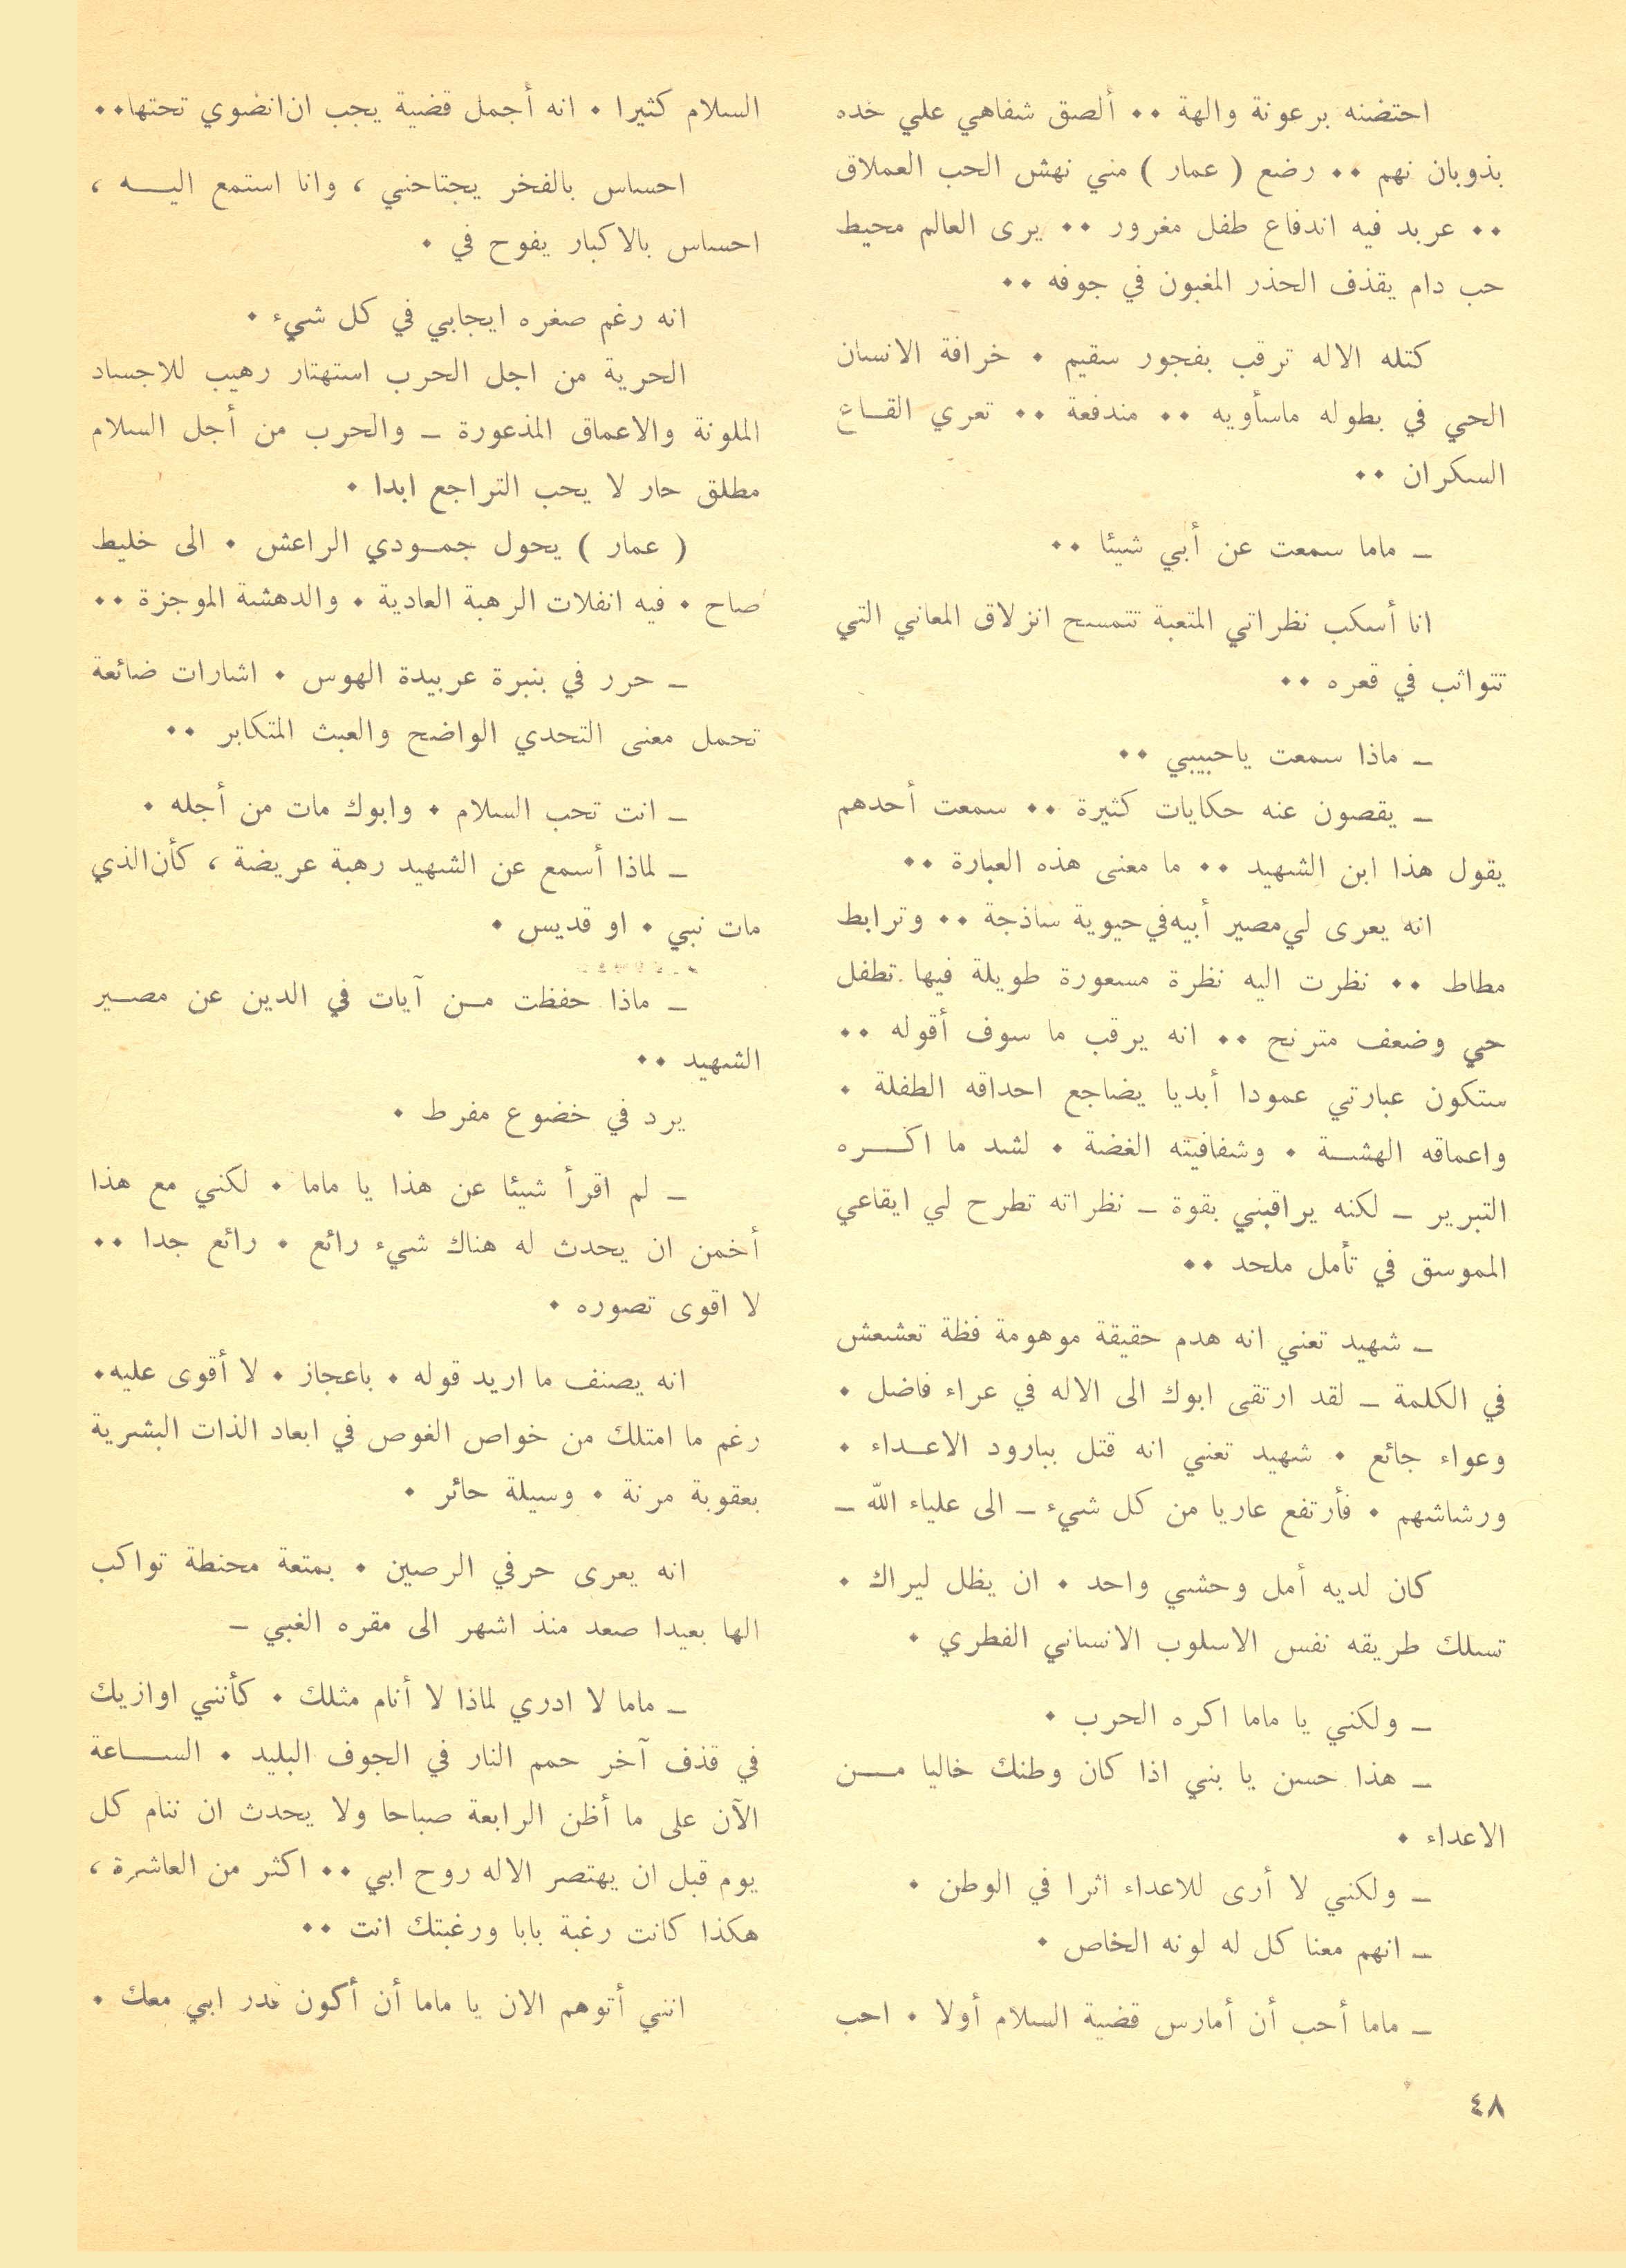 احتضنه برعونة والهة ٠٠ ألصق شفاهي علي خده
بذوبان نهم ٠٠ رضع ( عمار ) مني نهش الحب العملاق
٠٠ عربد فيه اندفاع طفل مغرور ٠٠ يرى العالم محيط
حب دام يقذف الحذر المغبون في جوفه ٠٠
كتله الاله ترقب بفجور سقيم ٠ خرافة الانسان
الحي في بطوله ماسأويه ٠٠ مندفعة ٠٠ تعري القاع
السكران ٠٠
ــ ماما سمعت عن أبي شيئا ٠٠
انا أسكب نظراتي المتعبة تتمسح انزلاق المعاني التي
تتواثب في قعره ٠٠
ــ ماذا سمعت ياحبيبي ٠٠
ــ يقصون عنه حكايات كثيرة ٠٠ سمعت أحدهم
يقول هذا ابن الشهيد ٠٠ ما معنى هذه العبارة ٠٠
انه يعرى لي مصير أبيه في حيوية ساذجة ٠٠ وترابط
مطاط ٠٠ نظرت اليه نظرة مسعورة طويلة فيها تطفل
حي وضعف مترنح ٠٠ انه يرقب ما سوف أقوله ٠٠
ستكون عبارتي عمودا أبديا يضاجع احداقه الطفلة ٠
واعماقه الهشة ٠ وشفافيته الغضة ٠ لشد ما اكره
التبرير ــ لكنه يراقبني بقوة ــ نظراته تطرح لي ايقاعي
المموسق في تأمل ملحد ٠٠
ــ شهيد تعني انه هدم حقيقة موهومة فظة تعشعش
في الكلمة ــ لقد ارتقى ابوك الى الاله في عراء فاضل ٠
وعواء جائع ٠ شهيد تعني انه قتل ببارود الاعداء ٠
ورشاشهم ٠ فأرتفع عاريا من كل شيء ــ الى علياء الله ــ
كان لديه أمل وحشي واحد ٠ ان يظل ليراك ٠
تسلك طريقه نفس الاسلوب الانساني الفطري ٠
ــ ولكني يا ماما اكره الحرب ٠
ــ هذا حسن يا بني اذا كان وطنك خاليا من
الاعداء ٠
ــ ولكني لا أرى للاعداء اثرا في الوطن ٠
ــ انهم معنا كل له لونه الخاص ٠
ــ ماما أحب أن أمارس قضية السلام أولا ٠ احب
السلام كثيرا ٠ انه أجمل قضية يجب ان انضوي تحتها٠٠
احساس بالفخر يجتاحني ، وانا استمع اليه ،
احساس بالاكبار يفوح في ٠
انه رغم صغره ايجابي في كل شيء ٠
الحرية من اجل الحرب استهتار رهيب للاجساد
الملونة والاعماق المذعورة ــ والحرب من أجل السلام
مطلق حار لا يحب التراجع ابدا ٠
( عمار ) يحول جمودي الراعش ٠ الى خليط
صاح ٠ فيه انفلات الرهبة العادية ٠ والدهشة الموجزة ٠٠
ــ حرر في بنبرة عربيدة الهوس ٠ اشارات ضائعة
تحمل معنى التحدي الواضح والعبث المتكابر ٠٠
ــ انت تحب السلام ٠ وابوك مات من أجله ٠
ــ لماذا أسمع عن الشهيد رهبة عريضة ، كأن الذي
مات نبي ٠ او قديس ٠
ــ ماذا حفظت من آيات في الدين عن مصير
الشهيد ٠٠
يرد في خضوع مفرط ٠
ــ لم اقرأ شيئا عن هذا يا ماما ٠ لكني مع هذا
أخمن ان يحدث له هناك شيء رائع ٠ رائع جدا ٠٠
لا اقوى تصوره ٠
انه يصنف ما اريد قوله ٠ باعجاز ٠ لا أقوى عليه٠
رغم ما امتلك من خواص الغوص في ابعاد الذات البشرية
بعقوبة مرنة ٠ وسيلة حائر ٠
انه يعرى حرفي الرصين ٠ بمتعة محنطة تواكب
الها بعيدا صعد منذ اشهر الى مقره الغبي ــ
ــ ماما لا ادري لماذا لا أنام مثلك ٠ كأنني اوازيك
في قذف آخر حمم النار في الجوف البليد ٠ الساعة
الآن على ما أظن الرابعة صباحا ولا يحدث ان ننام كل
يوم قبل ان يهتصر الاله روح ابي ٠٠ اكثر من العاشرة ،
هكذا كانت رغبة بابا ورغبتك انت ٠٠
انني أتوهم الان يا ماما أن أكون قدر ابي معك ٠
٤٨